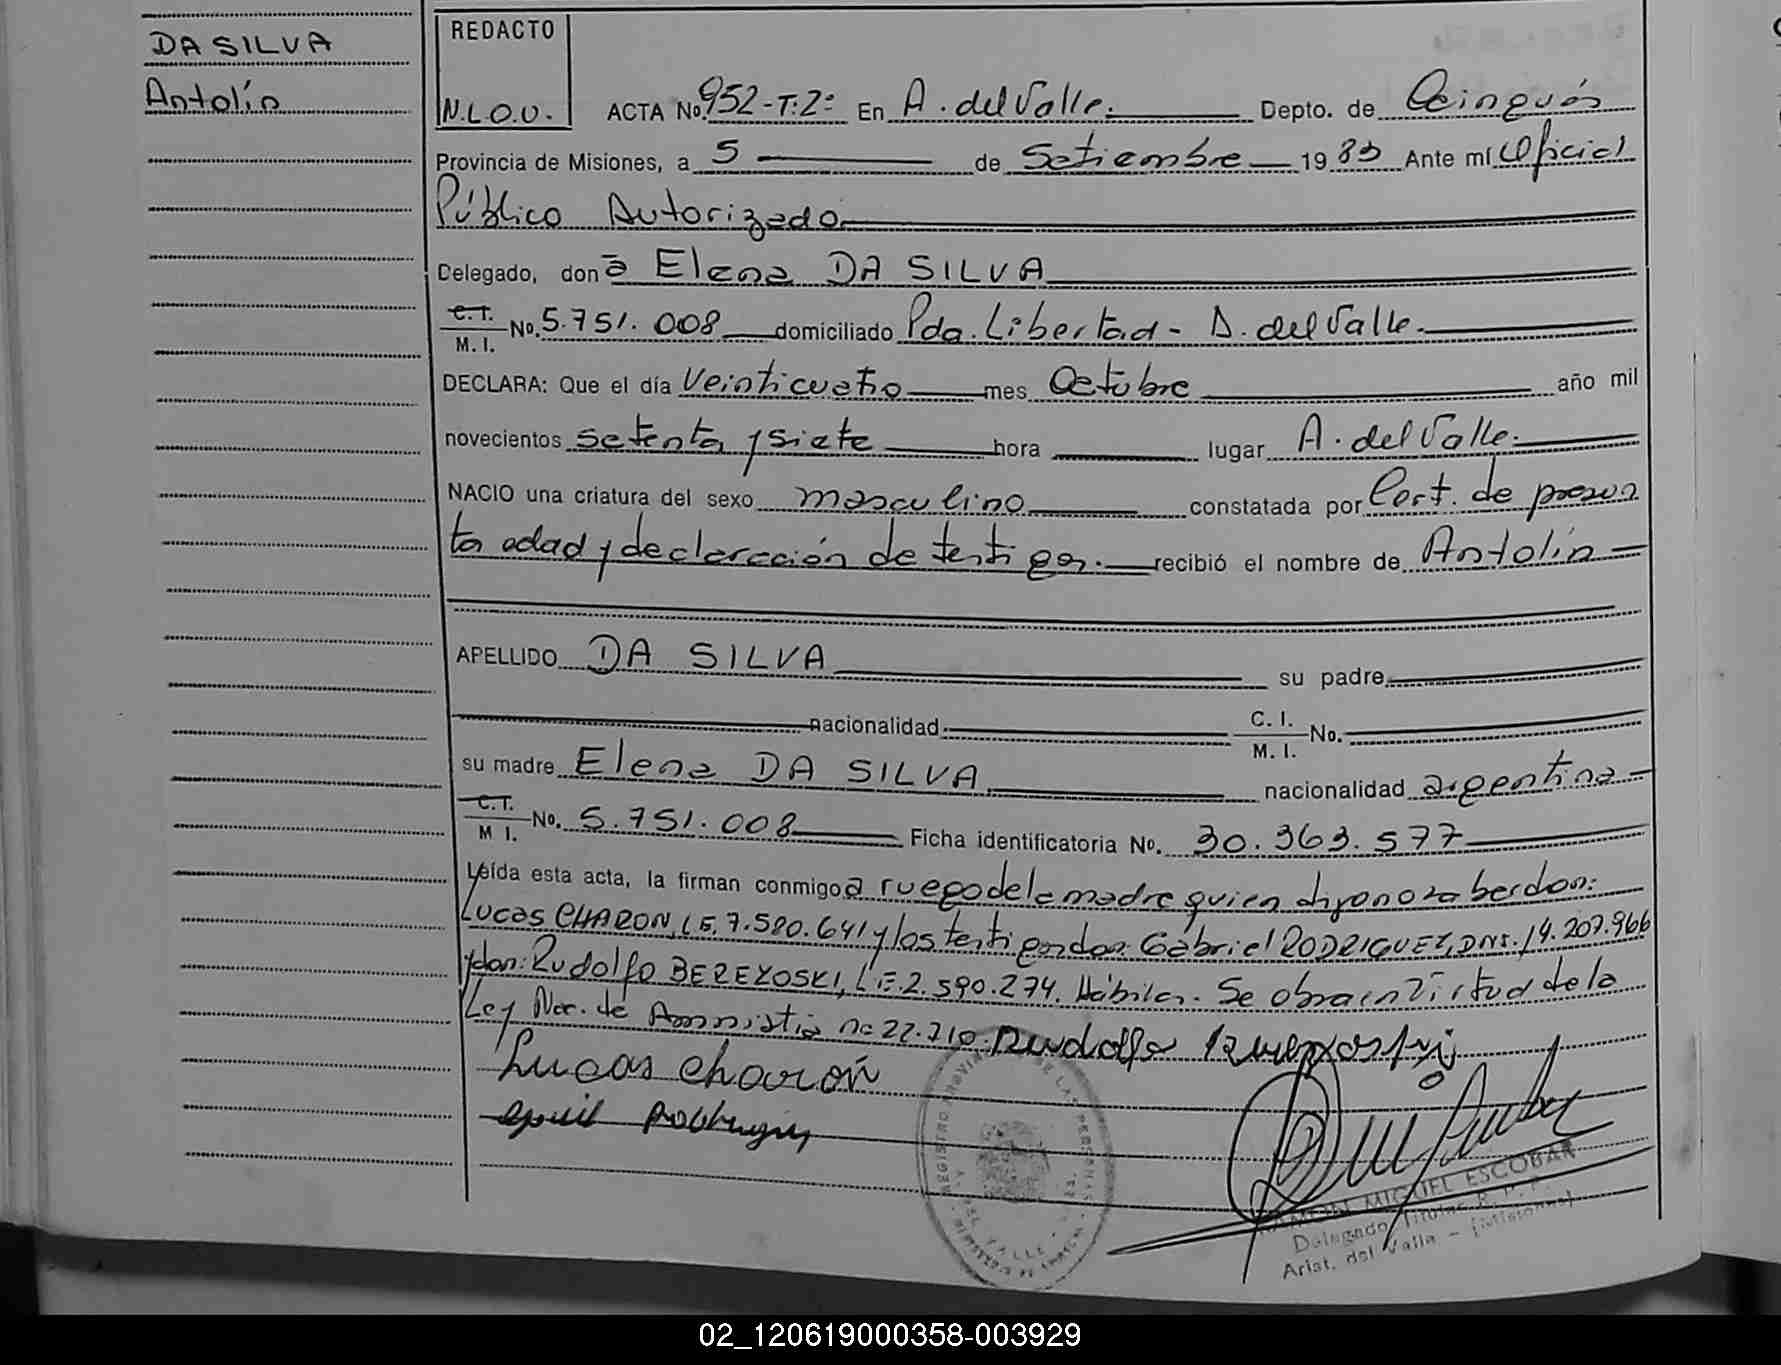 DA SILVA
Antolín
REDACTO
N.L.O.U.
ACTA No. 952-T:2º En A. del Valle. Depto. de Cainguás
Provincia de Misiones, a 5 de Setiembre 1983 Ante mí Oficial
Público Autorizado
Delegado, don a Elena DA SILVA
C.I. M. I. No. 5.751.008 domiciliado Pda. Libertad - A. del Valle.
DECLARA: Que el día veinticuatro mes Octubre año mil
novecientos setenta y siete hora lugar A. del Valle.
NACIO una criatura del sexo masculino constatada por Cert. de presun
ta edad y declaración de testigos. recibió el nombre de Antolín
APELLIDO DA SILVA su padre
nacionalidad C. I. M. I. No.
su madre Elena DA SILVA nacionalidad argentina
C.I. M I. No. 5.751.008 Ficha identificatoria No. 30.363.577
Leída esta acta, la firman conmigo a ruego de la madre quien dijo no saber don:
Lucas CHARON, LE. 7.580.641 y los testigos don: Gabriel RODRIGUEZ, DNI. 14.207.966
y don: Rudolfo BEREZOSKI, L.E. 2.590.274. Hábiles. Se obra en virtud de la
Ley Nac. de Amnistia no 22.710.
Lucas Charon
REGISTRO PROVINCIAL DE LAS PERSONAS
RAMON MIGUEL ESCOBAR
Delegado Titular R. P. P.
Arist. del Valle - (Misiones)
02_120619000358-003929